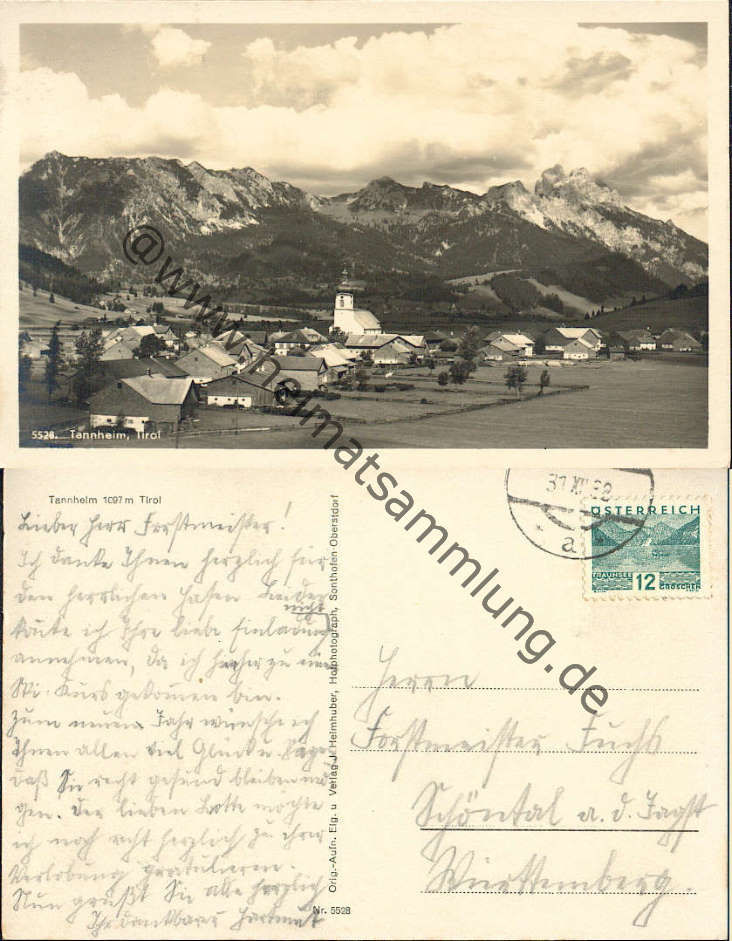 5528. Tannheim, Tirol
@www.heimatsammlung.de
Tannheim 1097 m Tirol
Lieber Herr Forstmeister!
Ich danke Ihnen herzlich für
den herrlichen Hasen. Leider
nicht
konte ich Ihre liebe Einladung
annehmen, da ich hierher zu einem
Ski-Kurs gekomen bin.
Zum neuen Jahr wünsche ich
Ihnen allen viel Glück u. Segen
daß Sie recht gesund bleiben mö-
gen. Der lieben Lotte möchte
ich noch recht herzlich zu ihrer
Verlobung gratulieren.
Nun grüßt Sie alle herzlich
Ihr dankbarer Hartmut
Orig.-Aufn. Eig. u Verlag J. Heimhuber, Hofphotograph, Sonthofen-Oberstdorf
Nr. 5528
31 XII 32
a
ÖSTERREICH
TRAUNSEE
12
GROSCHEN
Herrn
Forstmeister Fuchs
Schöntal a. d. Jagst
Württemberg.